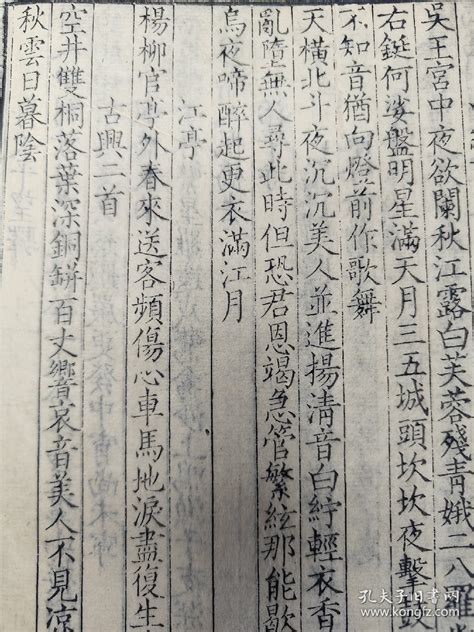 吳王宮中夜欲闌秋江露白芙蓉殘青娥二八羅
右鋋何娑盤明星滿天月三五城頭坎坎夜擊
不知音猶向燈前作歌舞
天橫北斗夜沉沉美人並進揚清音白紵輕衣香
亂墮虛無人尋此時但恐君恩竭急管繁絃那能歇
烏夜啼醉起更衣滿江月
江亭
楊柳官亭外春來送客頻傷心車馬地淚盡復生
古興二首
空井雙桐落葉深銅缾百丈響哀音美人不見凉
秋雲日暮陰
孔夫子旧书网
www.kongfz.com